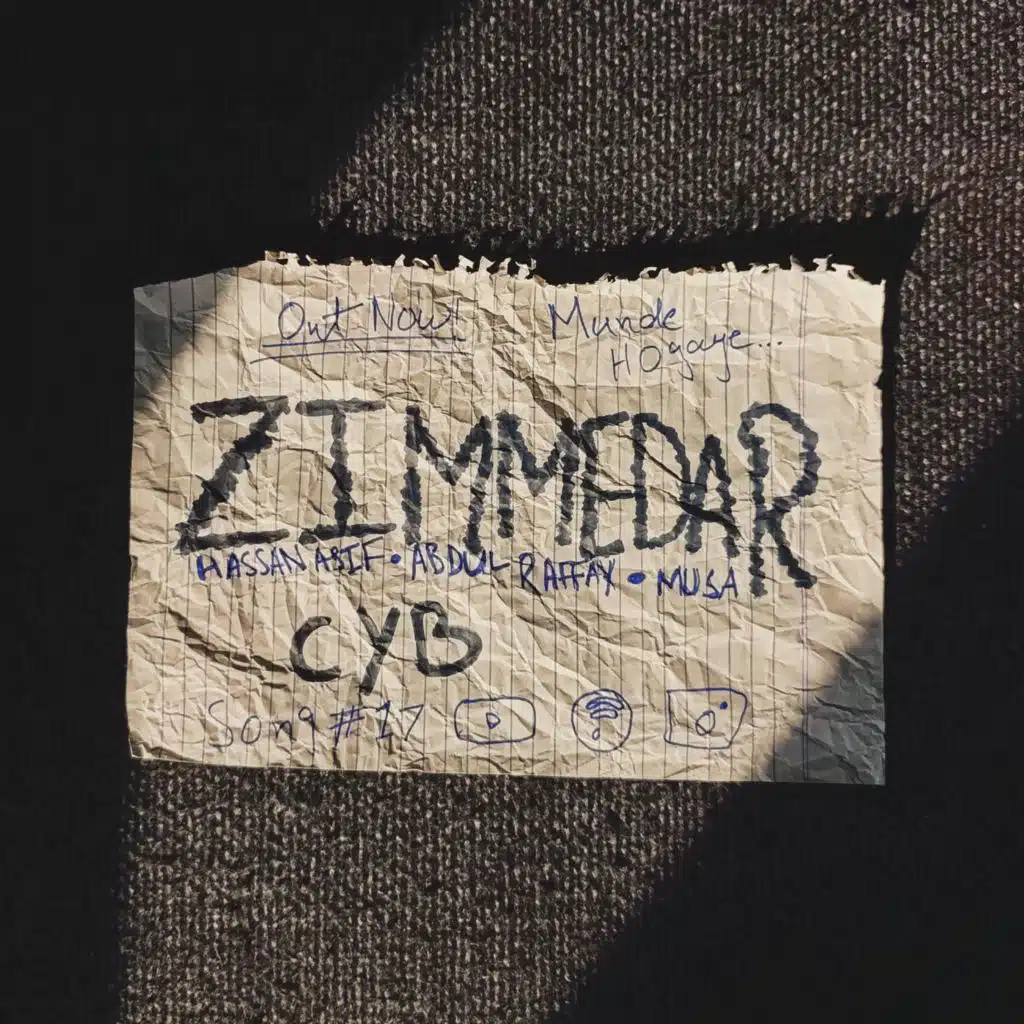 Out Now
Munde
HOgaye...
ZIMMEDAR
HASSAN ASIF • ABDUL RAFFAY • MUSA
CYB
Song #17